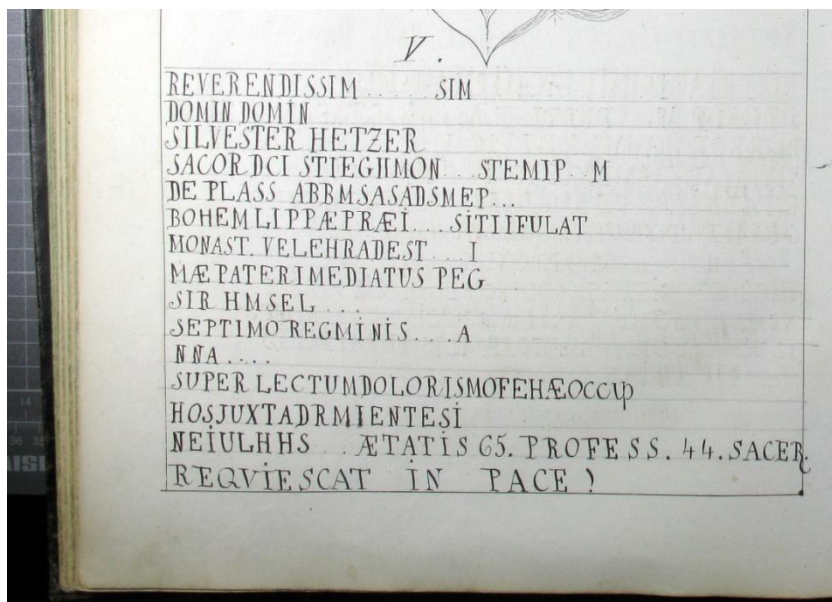 V.
REVERENDISSIM .... SIM
DOMIN DOMIN
SILVESTER HETZER
SACOR DCI STIEGHMON... STEMIP.. M
DE PLASS ABBMSASADSMEP...
BOHEM LIPPÆ PRÆI... SITIIFULAT
MONAST. VELEHRADEST... I
MÆ PATERIMEDIATUS PEG
SIR HMSEL...
SEPTIMO REGMINIS... A
NNA....
SUPER LECTUMDOLORISMOFEHÆOCCUP
HOSJUXTADRMIENTESI
NEIULHHS .. ÆTATIS 65. PROFESS. 44. SACER.
REQVIESCAT IN PACE!